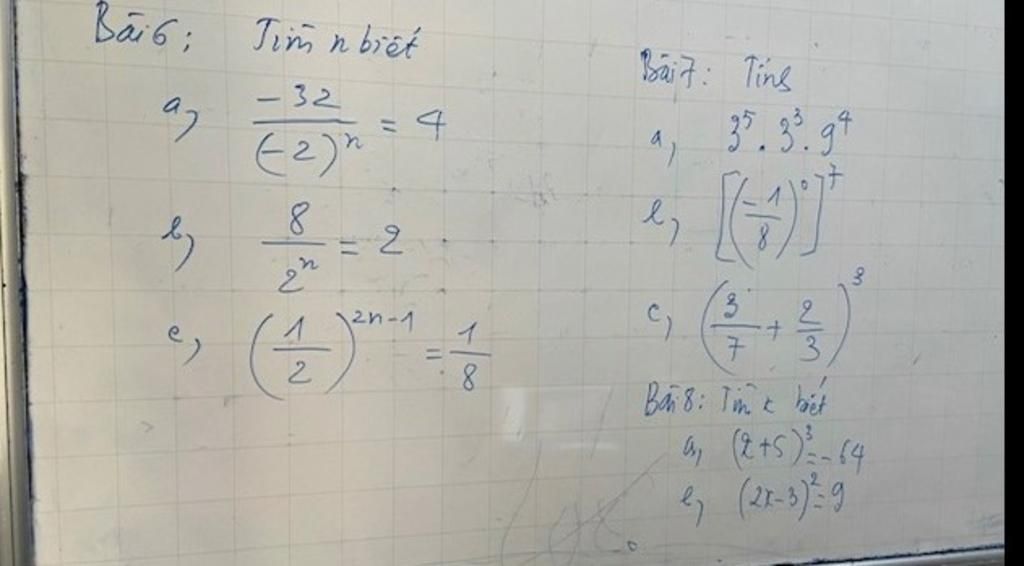 Bài 6: Tìm n biết
a, \frac{-32}{(-2)^n} = 4
b, \frac{8}{2^n} = 2
c, \left(\frac{1}{2}\right)^{2n-1} = \frac{1}{8}
Bài 7: Tính
a, 3^5 . 3^3 . 9^4
b, \left[\left(\frac{-1}{8}\right)^0\right]^7
c, \left(\frac{3}{7} + \frac{2}{3}\right)^3
Bài 8: Tìm x biết
a, (x+5)^3 = -64
b, (2x-3)^2 = 9